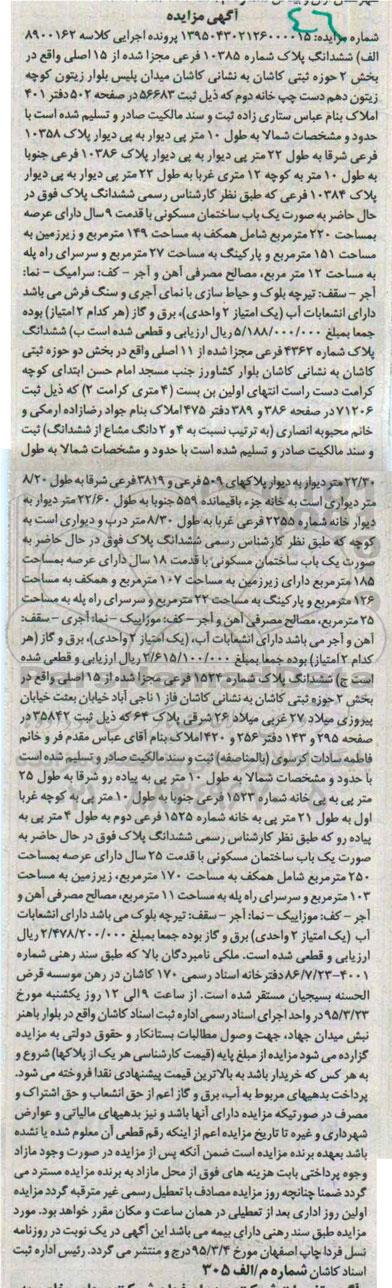 آگهی مزایده
شماره مزایده: ۱۳۹۵۰۴۳۰۲۱۲۶۰۰۰۰۱۵ پرونده اجرایی کلاسه ۸۹۰۰۱۶۲
الف) ششدانگ پلاک شماره ۱۰۳۸۵ فرعی مجزا شده از ۱۵ اصلی واقع در
بخش ۲ حوزه ثبتی کاشان به نشانی کاشان میدان پلیس بلوار زیتون کوچه
زیتون دهم دست چپ خانه دوم که ذیل ثبت ۵۶۶۸۳ در صفحه ۵۰۲ دفتر ۴۰۱
املاک بنام عباس ستاری زاده ثبت و سند مالکیت صادر و تسلیم شده است با
حدود و مشخصات شمالا به طول ۱۰ متر پی دیوار به پی دیوار پلاک ۱۰۳۵۸
فرعی شرقا به طول ۲۲ متر پی دیوار به پی دیوار پلاک ۱۰۳۸۶ فرعی جنوبا
به طول ۱۰ متر به کوچه ۱۲ متری غربا به طول ۲۲ متر پی دیوار به پی دیوار
پلاک ۱۰۳۸۴ فرعی که طبق نظر کارشناس رسمی ششدانگ پلاک فوق در
حال حاضر به صورت یک باب ساختمان مسکونی با قدمت ۹ سال دارای عرصه
بمساحت ۲۲۰ مترمربع شامل همکف به مساحت ۱۴۹ مترمربع و زیرزمین به
مساحت ۱۵۱ مترمربع و پارکینگ به مساحت ۲۷ مترمربع و سرسرای راه پله
به مساحت ۱۲ متر مربع، مصالح مصرفی آهن و آجر - کف: سرامیک - نما:
آجر - سقف: تیرچه بلوک و حیاط سازی با نمای آجری و سنگ فرش می باشد
دارای انشعابات آب (یک امتیاز ۲ واحدی)، برق و گاز (هر کدام ۲ امتیاز) بوده
جمعا بمبلغ ۵/۱۸۸/۰۰۰/۰۰۰ ریال ارزیابی و قطعی شده است ب) ششدانگ
پلاک شماره ۴۳۶۲ فرعی مجزا شده از ۱۱ اصلی واقع در بخش دو حوزه ثبتی
کاشان به نشانی کاشان بلوار کشاورز جنب مسجد امام حسن ابتدای کوچه
کرامت دست راست انتهای اولین بن بست (۴ متری کرامت ۲) که ذیل ثبت
۷۱۲۰۶ در صفحه ۳۸۶ و ۳۸۹ دفتر ۴۷۵ املاک بنام جواد رضازاده ارمکی و
خانم محبوبه انصاری (به ترتیب نسبت به ۴ و ۲ دانگ مشاع از ششدانگ) ثبت
و سند مالکیت صادر و تسلیم شده است با حدود و مشخصات شمالا به طول
۲۲/۳۰ متر دیوار به دیوار پلاکهای ۵۰۹ فرعی و ۳۸۱۹ فرعی شرقا به طول ۸/۲۰
متر دیواری است به خانه جزء باقیمانده ۵۵۹ جنوبا به طول ۲۲/۶۰ متر دیوار به
دیوار خانه شماره ۲۲۵۵ فرعی غربا به طول ۸/۳۰ متر درب و دیواری است به
کوچه که طبق نظر کارشناس رسمی ششدانگ پلاک فوق در حال حاضر به
صورت یک باب ساختمان مسکونی با قدمت ۱۸ سال دارای عرصه بمساحت
۱۸۵ مترمربع دارای زیرزمین به مساحت ۱۰۷ مترمربع و همکف به مساحت
۱۲۶ مترمربع و پارکینگ به مساحت ۲۲ مترمربع و سرسرای راه پله به مساحت
۲۵ مترمربع، مصالح مصرفی آهن و آجر - کف: موزاییک - نما: آجری - سقف:
آهن و آجر می باشد دارای انشعابات آب، (یک امتیاز ۲ واحدی)، برق و گاز (هر
کدام ۲ امتیاز) بوده جمعا بمبلغ ۲/۶۱۵/۱۰۰/۰۰۰ ریال ارزیابی و قطعی شده
است ج) ششدانگ پلاک شماره ۱۵۲۴ فرعی مجزا شده از ۱۵ اصلی واقع در
بخش ۲ حوزه ثبتی کاشان به نشانی کاشان فاز ۱ ناجی آباد خیابان بعثت خیابان
پیروزی میلاد ۲۷ غربی میلاد ۲۶ شرقی پلاک ۶۴ که ذیل ثبت ۳۵۸۴۲ در
صفحه ۲۹۵ و ۱۴۳ دفتر ۲۵۶ و ۴۲۰ املاک بنام آقای عباس مقدم فر و خانم
فاطمه سادات کرسوی (بالمناصفه) ثبت و سند مالکیت صادر و تسلیم شده است
با حدود و مشخصات شمالا به طول ۱۰ متر پی به پیاده رو شرقا به طول ۲۵
متر پی به پی خانه شماره ۱۵۲۳ فرعی جنوبا به طول ۱۰ متر پی به کوچه غربا
اول به طول ۲۱ متر پی به خانه شماره ۱۵۲۵ فرعی دوم به طول ۴ متر پی به
پیاده رو که طبق نظر کارشناس رسمی ششدانگ پلاک فوق در حال حاضر به
صورت یک باب ساختمان مسکونی با قدمت ۲۵ سال دارای عرصه بمساحت
۲۵۰ مترمربع شامل همکف به مساحت ۱۷۰ مترمربع، زیرزمین به مساحت
۱۰۳ مترمربع و سرسرای راه پله به مساحت ۱۱ مترمربع، مصالح مصرفی آهن و
آجر - کف: موزاییک - نما: آجر - سقف: تیرچه بلوک می باشد دارای انشعابات
آب (یک امتیاز ۲ واحدی) برق و گاز بوده جمعا بمبلغ ۲/۴۷۸/۲۰۰/۰۰۰ ریال
ارزیابی و قطعی شده است. ملکی نامبردگان بالا که طبق سند رهنی شماره
۴۰۰۱-۸۶/۷/۲۳ دفترخانه اسناد رسمی ۱۷۰ کاشان در رهن موسسه قرض
الحسنه بسیجیان مستقر شده است. از ساعت ۹ الی ۱۲ روز یکشنبه مورخ
۹۵/۳/۲۳ در واحد اجرای اسناد رسمی اداره ثبت اسناد کاشان واقع در بلوار باهنر
نبش میدان جهاد، جهت وصول مطالبات بستانکار و حقوق دولتی به مزایده
گزارده می شود مزایده از مبلغ پایه (قیمت کارشناسی هر یک از پلاکها) شروع و
به هر کس که خریدار باشد به بالاترین قیمت پیشنهادی نقدا فروخته می شود.
پرداخت بدهیهای مربوط به آب، برق و گاز اعم از حق انشعاب و حق اشتراک و
مصرف در صورتیکه مزایده دارای آنها باشد و نیز بدهیهای مالیاتی و عوارض
شهرداری و غیره تا تاریخ مزایده اعم از اینکه رقم قطعی آن معلوم شده یا نشده
باشد بعهده برنده مزایده است ضمن آنکه پس از مزایده در صورت وجود مازاد
وجوه پرداختی بابت هزینه های فوق از محل مازاد به برنده مزایده مسترد می
گردد ضمنا چنانچه روز مزایده مصادف با تعطیل رسمی غیر مترقبه گردد مزایده
اولین روز اداری بعد از تعطیلی در همان ساعت و مکان مقرر خواهد بود. مورد
مزایده طبق سند رهنی دارای بیمه می باشد این آگهی در یک نوبت در روزنامه
نسل فردا چاپ اصفهان مورخ ۹۵/۳/۴ درج و منتشر می گردد. رئیس اداره ثبت
اسناد کاشان شماره م/الف ۳۰۵